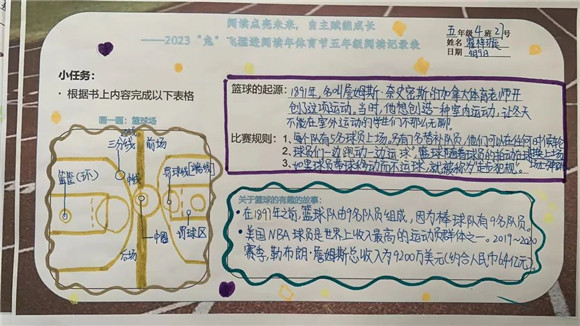 阅读点亮未来，自主赋能成长
——2023“兔”飞猛进阅读年体育节五年级阅读记录表
五年级4班27号
姓名
日期
小任务：
· 根据书上内容完成以下表格
画一画：篮球场
三分线
前场
篮筐(环)
中线
罚球区
中圈
后场
篮球的起源：1891年，名叫詹姆斯·奈史密斯的加拿大体育老师开
创了这项运动。当时，他想创造一种室内运动，让冬天
不能在室外运动的学生们不那么无聊。
比赛规则：1、每个队有5名球员上场。另有7名替补队员，他们可以在任何时候
2、球员们一边跑动一边运球，篮球随着球员的
3、如果球员带球移动而不运球，就被称为“走步犯规”。
关于篮球的有趣的故事：
· 在1897年之前，篮球队由9名队员组成，因为棒球队有9名队员。
· 美国NBA球员是世界上收入最高的运动员群体之一。2019~2020
赛季，勒布朗·詹姆斯总收入为9200万美元(约合人民币6.4亿元)。